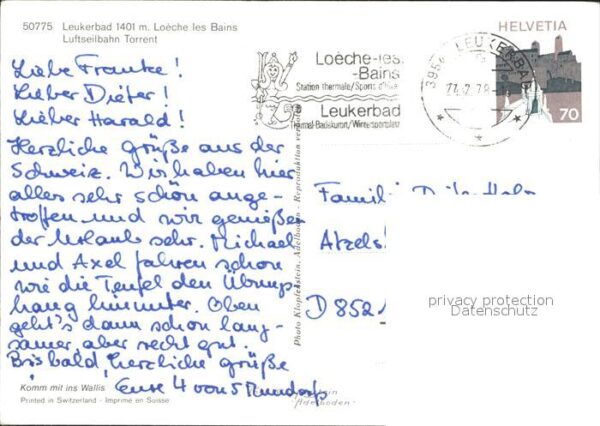 50775 Leukerbad 1401 m. Loèche les Bains
Luftseilbahn Torrent
Liebe Frauke!
Lieber Dieter!
Lieber Harald!
Herzliche Grüße aus der
Schweiz. Wir haben hier
alles sehr schön ange-
troffen und wir genießen
der Urlaub sehr. Michael
und Axel fahren schon
wie die Teufel den Übungs-
hang hinunter. Oben
geht's dann schon lang-
samer, aber recht gut.
Bis bald, herzliche Grüße
Eure 4 von 5
Komm mit ins Wallis
Printed in Switzerland - Imprimé en Suisse
Photo Klopfenstein, Adelboden - Reproduktion verboten
Adelboden
Loèche-les-
-Bains
Station thermale/Sports d'hiver
Leukerbad
Thermal-Badekurort/Wintersportplatz
LEUKERBAD
HELVETIA
70
Famili
Atzels
D 852
privacy protection
Datenschutz